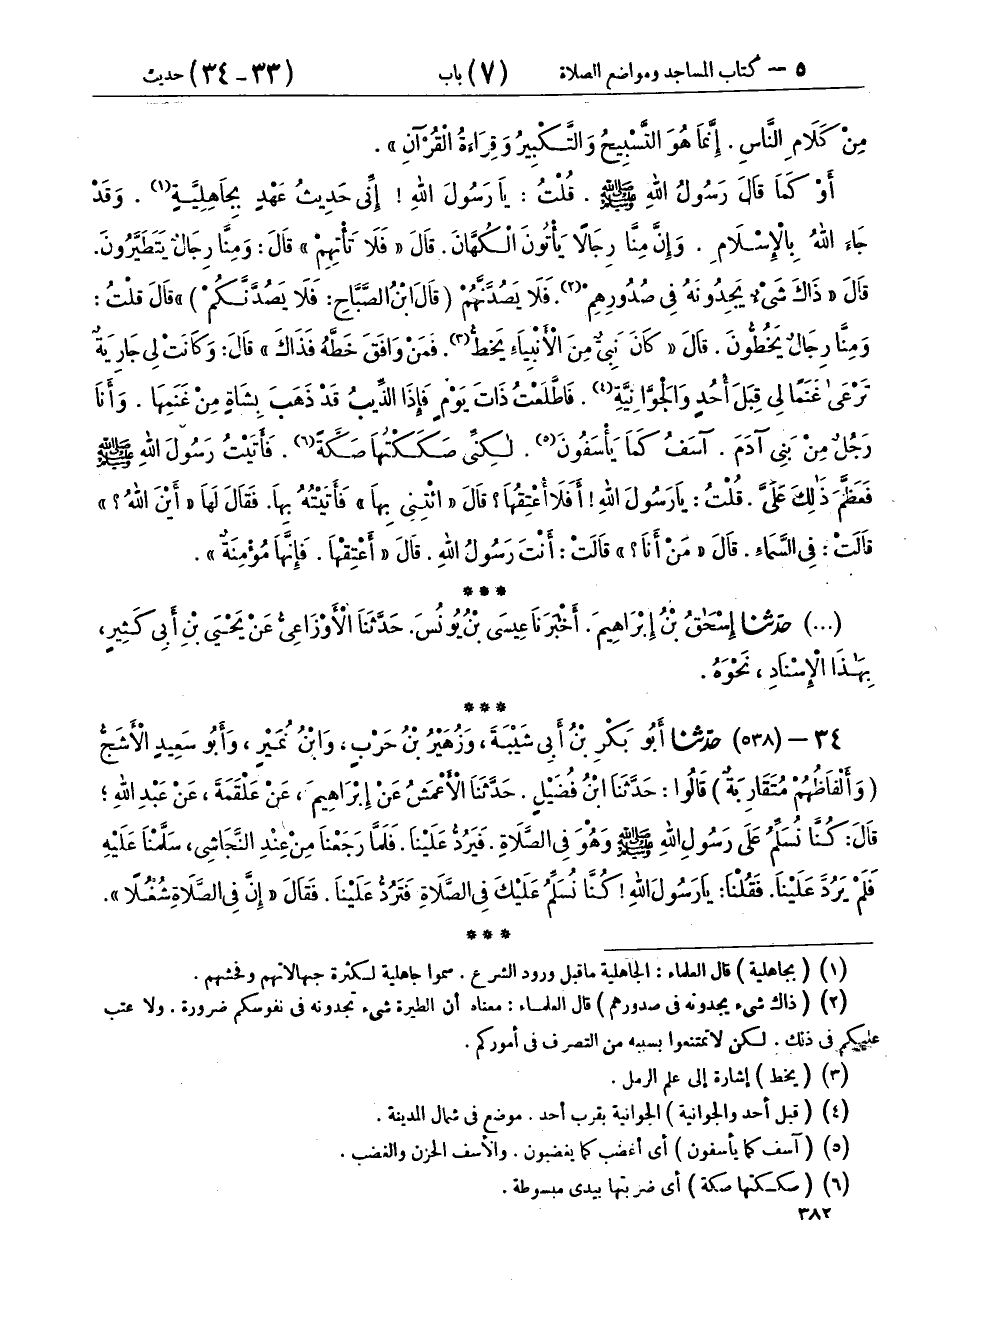 ٥ – كتاب المساجد ومواضع الصلاة (٧) باب (٣٣-٣٤) حديث
مِنْ كَلَامِ النَّاسِ . إِنَّمَا هُوَ التَّسْبِيحُ وَالتَّكْبِيرُ وَقِرَاءَةُ الْقُرْآنِ » .
أَوْ كَمَا قَالَ رَسُولُ اللهِ ﷺ . قُلْتُ : يَا رَسُولَ اللهِ ! إِنِّي حَدِيثُ عَهْدٍ بِجَاهِلِيَّةٍ(١) . وَقَدْ
جَاءَ اللهُ بِالْإِسْلَامِ . وَإِنَّ مِنَّا رِجَالًا يَأْتُونَ الْكُهَّانَ . قَالَ « فَلَا تَأْتِهِمْ » قَالَ : وَمِنَّا رِجَالٌ يَتَطَيَّرُونَ .
قَالَ « ذَاكَ شَيْءٌ يَجِدُونَهُ فِي صُدُورِهِمْ(٢) . فَلَا يَصُدَّنَّهُمْ ( قَالَ ابْنُ الصَّبَّاحِ : فَلَا يَصُدَّنَّكُمْ ) » قَالَ قُلْتُ :
وَمِنَّا رِجَالٌ يَخُطُّونَ . قَالَ « كَانَ نَبِيٌّ مِنَ الْأَنْبِيَاءِ يَخُطُّ(٣) . فَمَنْ وَافَقَ خَطَّهُ فَذَاكَ » قَالَ : وَكَانَتْ لِي جَارِيَةٌ
تَرْعَىٰ غَنَمًا لِي قِبَلَ أُحُدٍ وَالْجَوَّانِيَّةِ(٤) . فَاطَّلَعْتُ ذَاتَ يَوْمٍ فَإِذَا الذِّيبُ قَدْ ذَهَبَ بِشَاةٍ مِنْ غَنَمِهَا . وَأَنَا
رَجُلٌ مِنْ بَنِي آدَمَ . آسَفُ كَمَا يَأْسَفُونَ(٥) . لَكِنِّي صَكَكْتُهَا صَكَّةً(٦) . فَأَتَيْتُ رَسُولَ اللهِ ﷺ
فَعَظَّمَ ذَٰلِكَ عَلَيَّ . قُلْتُ : يَا رَسُولَ اللهِ ! أَفَلَا أُعْتِقُهَا ؟ قَالَ « ائْتِنِي بِهَا » فَأَتَيْتُهُ بِهَا . فَقَالَ لَهَا « أَيْنَ اللهُ ؟ »
قَالَتْ : فِي السَّمَاءِ . قَالَ « مَنْ أَنَا ؟ » قَالَتْ : أَنْتَ رَسُولُ اللهِ . قَالَ « أَعْتِقْهَا . فَإِنَّهَا مُؤْمِنَةٌ » .
***
(...) حدّثنا إِسْحَٰقُ بْنُ إِبْرَاهِيمَ . أَخْبَرَنَا عِيسَى بْنُ يُونُسَ . حَدَّثَنَا الْأَوْزَاعِيُّ عَنْ يَحْيَى بْنِ أَبِي كَثِيرٍ ،
بِهَٰذَا الْإِسْنَادِ ، نَحْوَهُ .
***
٣٤ – (٥٣٨) حدّثنا أَبُو بَكْرِ بْنُ أَبِي شَيْبَةَ ، وَزُهَيْرُ بْنُ حَرْبٍ ، وَابْنُ نُمَيْرٍ ، وَأَبُو سَعِيدٍ الْأَشَجُّ
( وَأَلْفَاظُهُمْ مُتَقَارِبَةٌ ) قَالُوا : حَدَّثَنَا ابْنُ فُضَيْلٍ . حَدَّثَنَا الْأَعْمَشُ عَنْ إِبْرَاهِيمَ ، عَنْ عَلْقَمَةَ ، عَنْ عَبْدِ اللهِ ؛
قَالَ : كُنَّا نُسَلِّمُ عَلَى رَسُولِ اللهِ ﷺ وَهُوَ فِي الصَّلَاةِ . فَيَرُدُّ عَلَيْنَا . فَلَمَّا رَجَعْنَا مِنْ عِنْدِ النَّجَاشِي ، سَلَّمْنَا عَلَيْهِ
فَلَمْ يَرُدَّ عَلَيْنَا . فَقُلْنَا : يَا رَسُولَ اللهِ ! كُنَّا نُسَلِّمُ عَلَيْكَ فِي الصَّلَاةِ فَتَرُدُّ عَلَيْنَا . فَقَالَ « إِنَّ فِي الصَّلَاةِ شُغْلًا » .
***
(١) ( بجاهلية ) قال العلماء : الجاهلية ماقبل ورود الشرع . سموا جاهلية لكثرة جهالاتهم وفحشهم .
(٢) ( ذاك شيء يجدونه في صدورهم ) قال العلماء : معناه أن الطيرة شيء تجدونه في نفوسكم ضرورة . ولا عتب
عليكم في ذلك . لكن لا تمتنعوا بسببه من التصرف في أموركم .
(٣) ( يخط ) إشارة إلى علم الرمل .
(٤) ( قبل أحد والجوانية ) الجوانية بقرب أحد . موضع في شمال المدينة .
(٥) ( آسف كما يأسفون ) أي أغضب كما يغضبون . والأسف الحزن والغضب .
(٦) ( صككتها صكة ) أي ضربتها بيدي مبسوطة .
٣٨٢